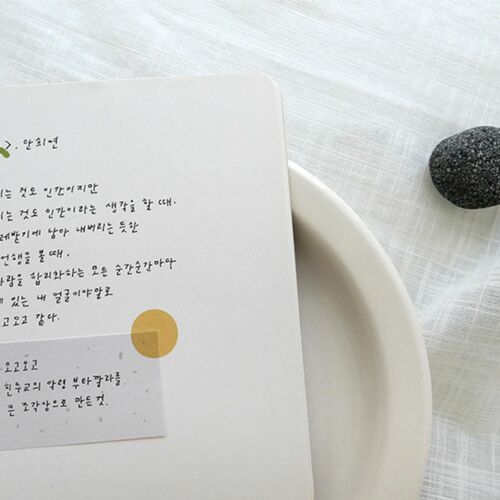 >. 안희연
는 것도 인간이지만
는 것도 인간이라는 생각을 할 때.
레받기에 담아 내버리는 듯한
언행을 볼 때,
사람을 합리화하는 모든 순간순간마다
에 있는 내 얼굴이야말로
고오고 같다.
오고오고
힌두교의 악령 부타깔라를
큰 조각상으로 만든것.